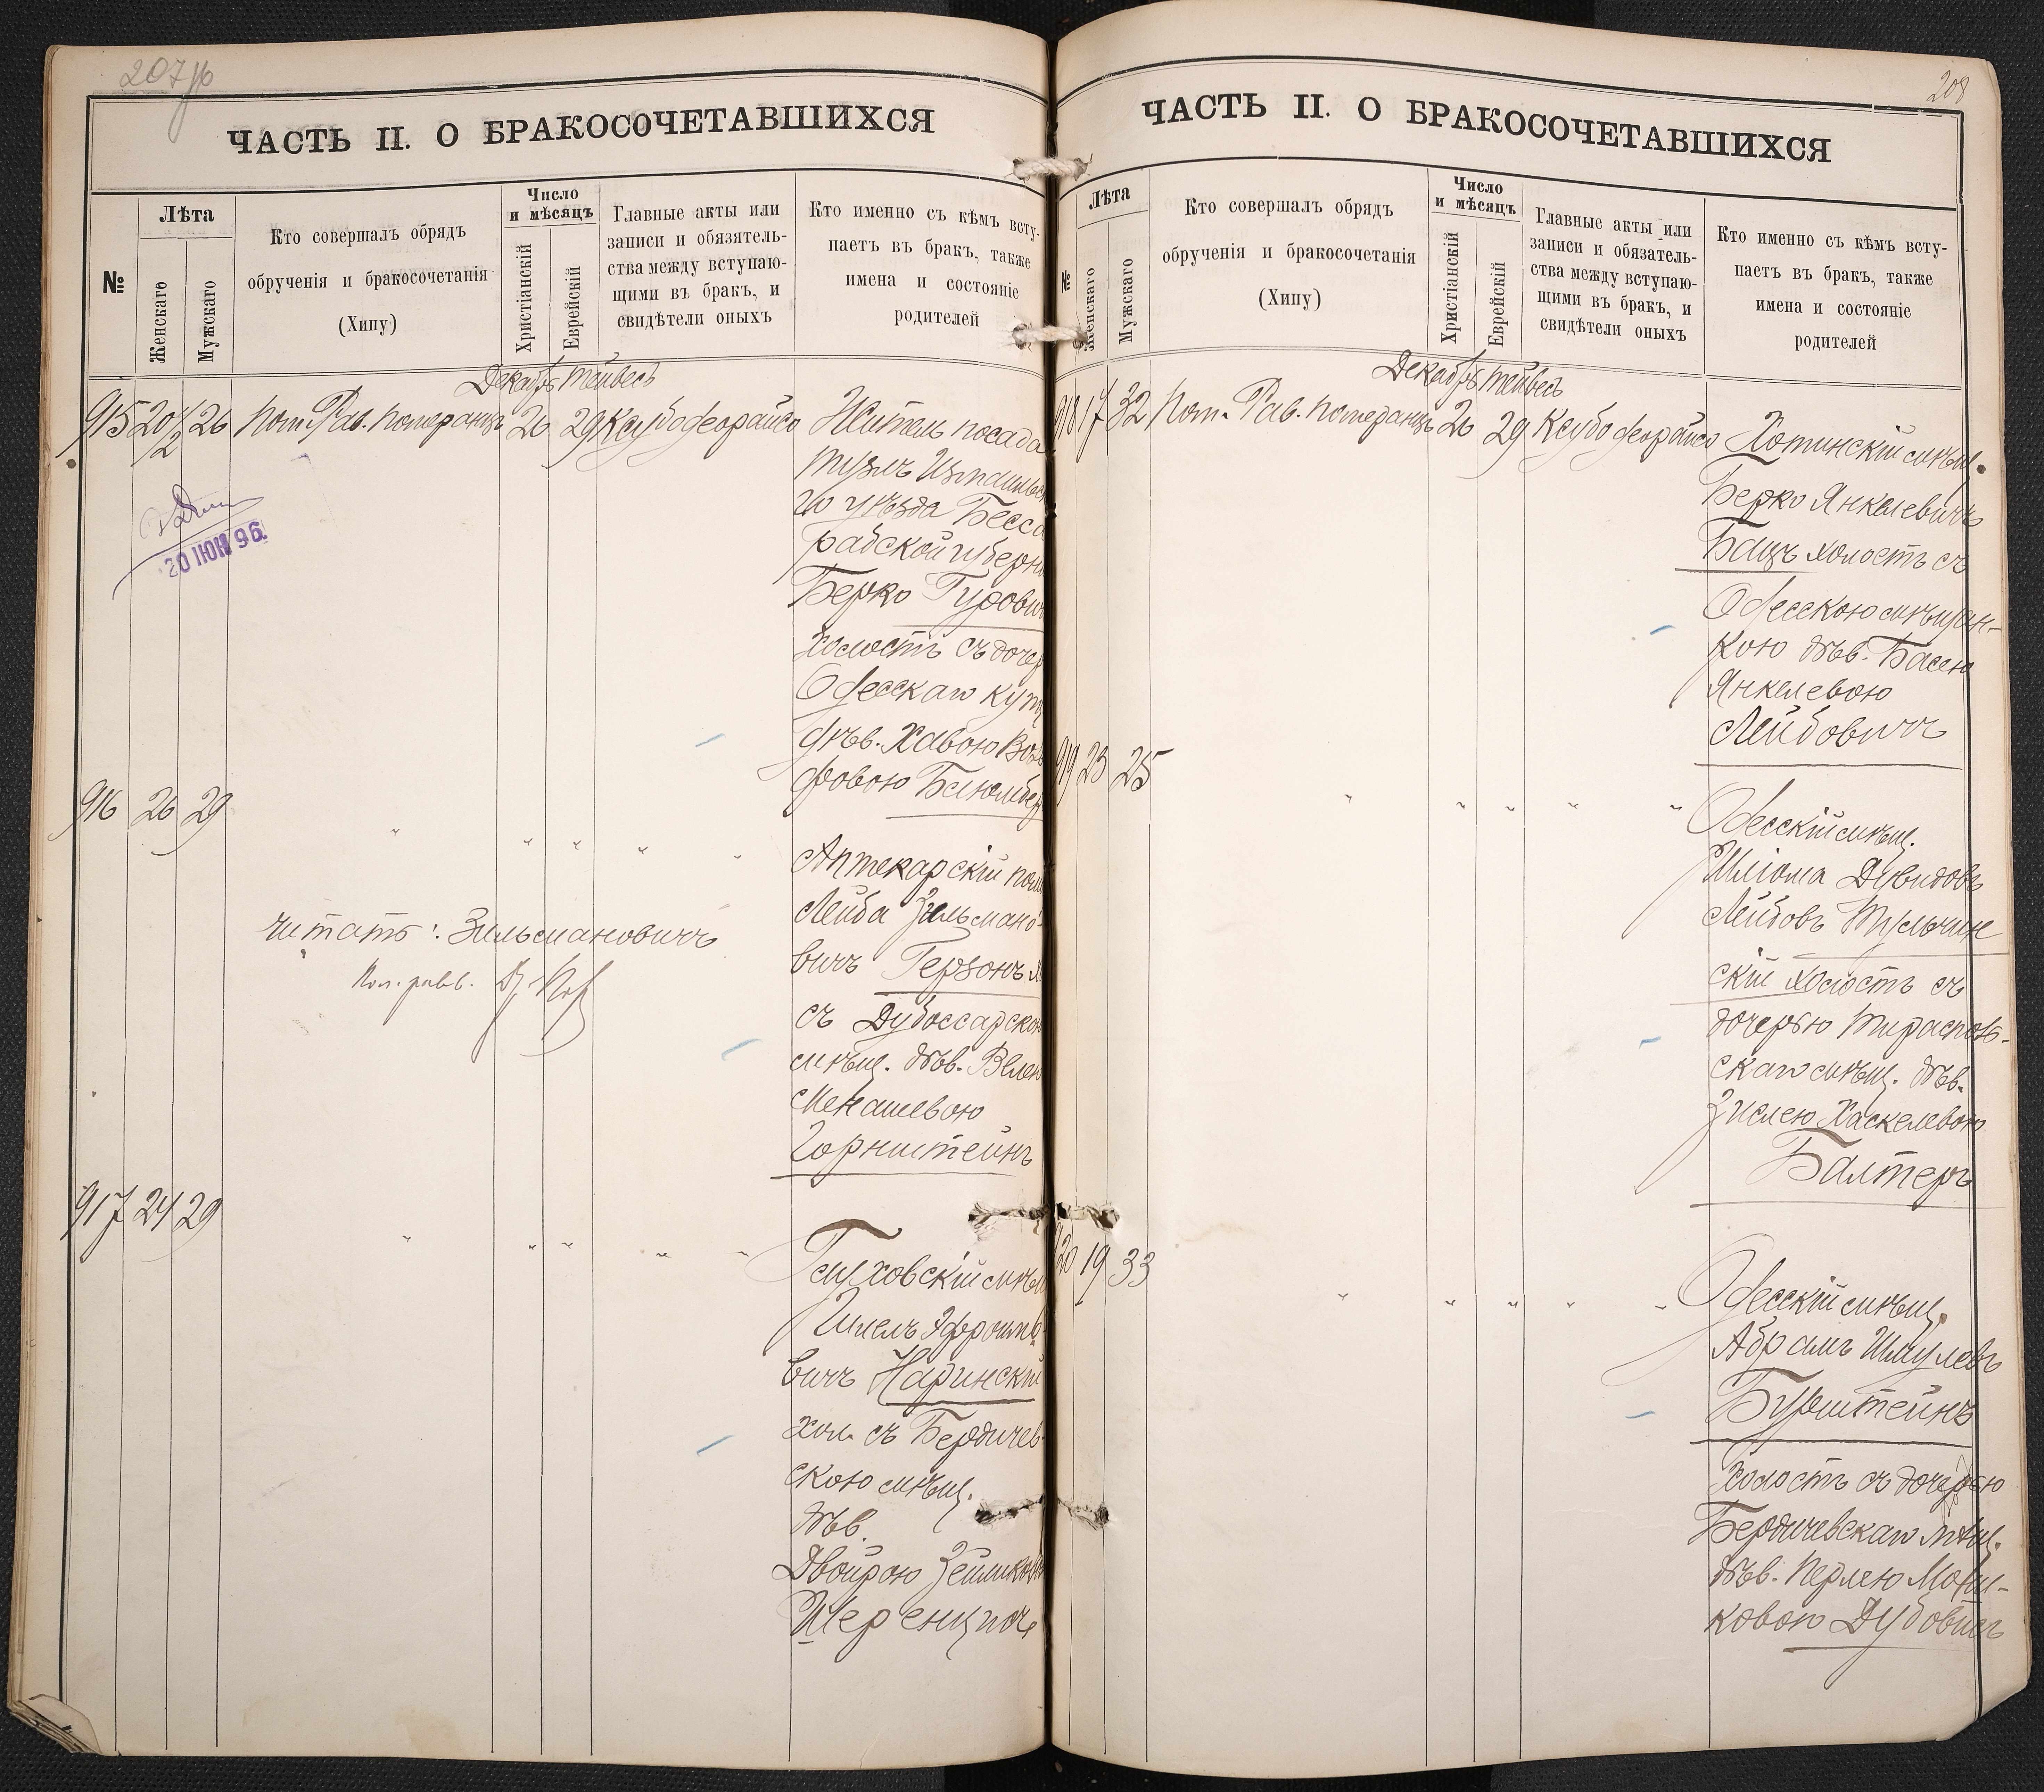 207
ЧАСТЬ II. О БРАКОСОЧЕТАВШИХСЯ
№
Лѣта
Женскаго
Мужскаго
Кто совершалъ обрядъ
обрученія и бракосочетанія
(Хипу)
Число
и мѣсяцъ
Христіанскій
Еврейскій
Главные акты или
записи и обязятель-
ства между вступаю-
щими въ бракъ, и
свидѣтели оныхъ
Кто именно съ кѣмъ всту-
паетъ въ бракъ, также
имена и состояніе
родителей
Декабрь Тейвесъ
915 20 1/2 26 Пом. Рав. Померанцъ 26 29 Ксубо
Житель посада
Тузлъ
го уѣзда Бесса
рабской губерн
Берко Гурович
холостъ съ дочер
Одесскаго куп
дѣв. Хавою Воль
фовою
20 ІЮН 96.
916 26 29 " " " " "
Аптекарскій пом
Лейба Зельмано-
вичъ Герзонъ х
съ Дубоссарскою
мѣщ. дѣв. Велею
Менашевою
Горнштейнъ
читать: Зильмановичъ
Пом. равв.
917 24 29 " " " " "
Глуховскій мѣщ
вичъ Наринскій
хол. съ Бердичев-
скою мѣщ.
дѣв.
Двойрою
208
ЧАСТЬ II. О БРАКОСОЧЕТАВШИХСЯ
№
Лѣта
Женскаго
Мужскаго
Кто совершалъ обрядъ
обрученія и бракосочетанія
(Хипу)
Число
и мѣсяцъ
Христіанскій
Еврейскій
Главные акты или
записи и обязатель-
ства между вступаю-
щими въ бракъ, и
свидѣтели оныхъ
Кто именно съ кѣмъ всту-
паетъ въ бракъ, также
имена и состояніе
родителей
Декабрь Тейвесъ
918 17 32 Пом. Рав. Померанцъ 26 29 Ксубо
Хотинскій мѣщ.
Берко Янкелевичъ
Бацъ холостъ съ
Одесскою мѣщан-
кою дѣв. Басею
Янкелевою
Лейбовичъ
919 23 25 " " " " "
Одесскій мѣщ.
Шліома Дувидовъ
Лейбовъ Тульчин
скій холостъ съ
дочерью Тирасполь-
скаго мѣщ. дѣв.
Зислею Хаскелевою
Балтеръ
20 19 33 " " " " "
Одесскій мѣщ.
Абрамъ Шмулевъ
Бурштейнъ
холостъ съ дочерью
Бердичевскаго мѣщ.
дѣв. Перлею Мош-
ковою